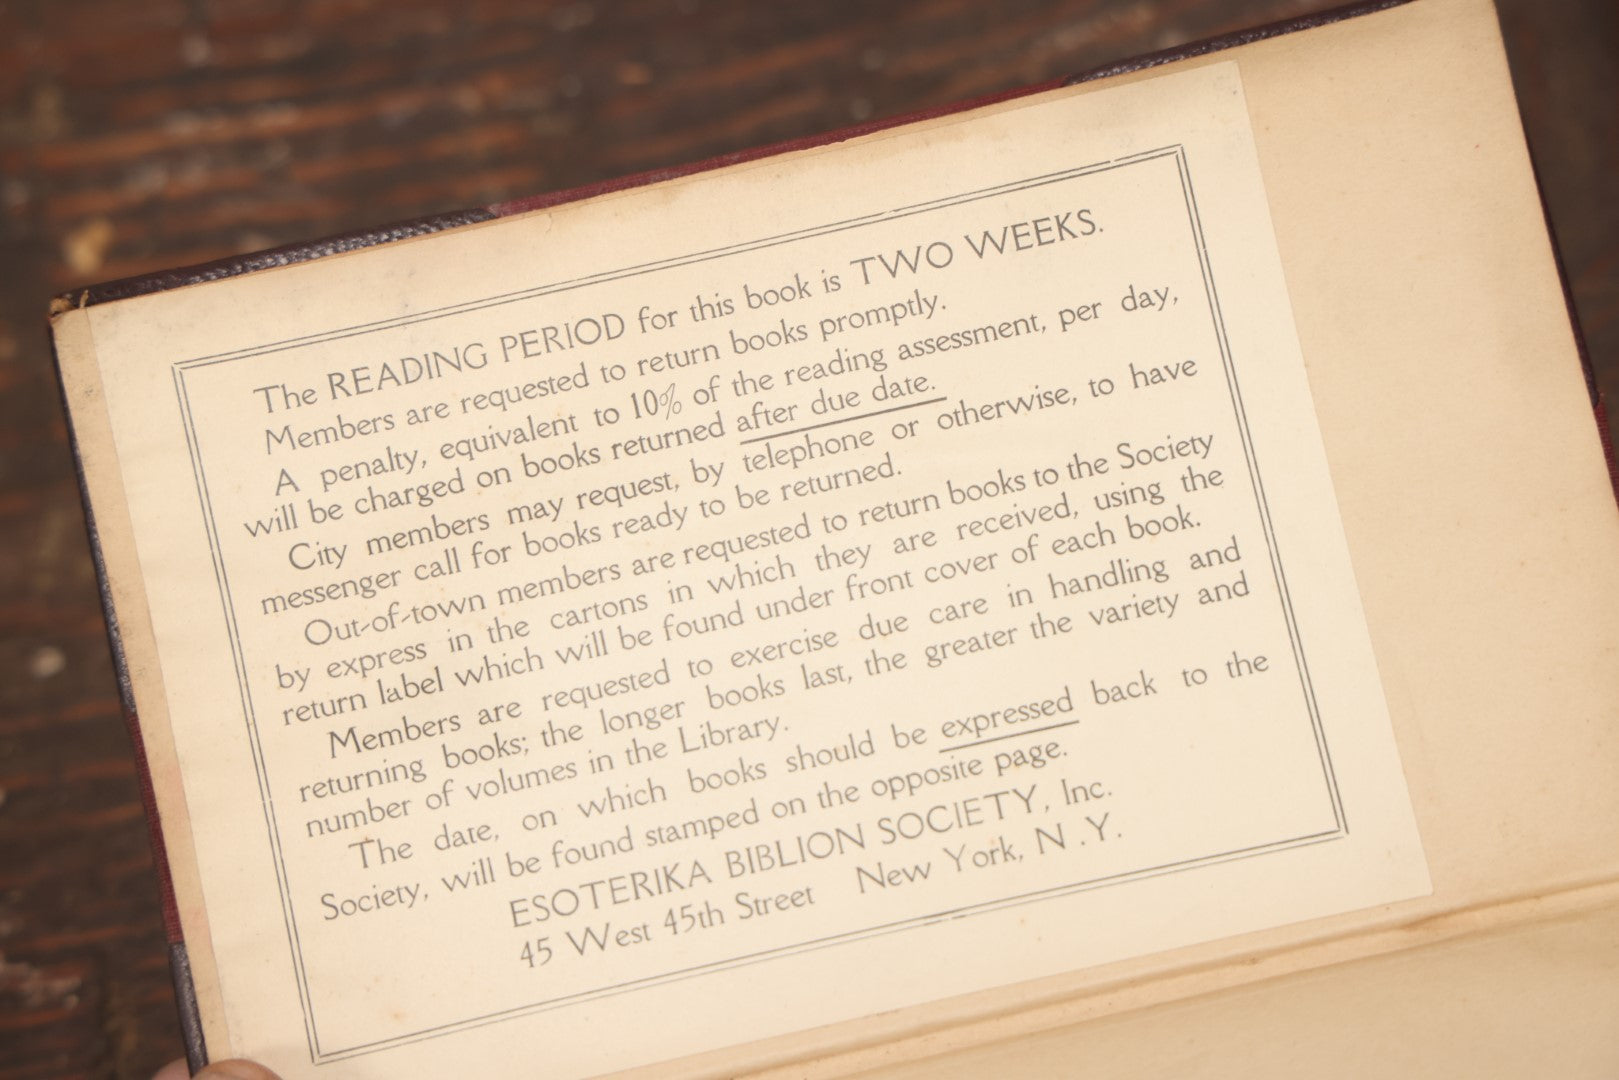 The READING PERIOD for this book is TWO WEEKS.
Members are requested to return books promptly.
A penalty, equivalent to 10% of the reading assessment, per day,
will be charged on books returned after due date.
City members may request, by telephone or otherwise, to have
messenger call for books ready to be returned.
Out-of-town members are requested to return books to the Society
by express in the cartons in which they are received, using the
return label which will be found under front cover of each book.
Members are requested to exercise due care in handling and
returning books; the longer books last, the greater the variety and
number of volumes in the Library.
The date, on which books should be expressed back to the
Society, will be found stamped on the opposite page.
ESOTERIKA BIBLION SOCIETY, Inc.
45 West 45th Street New York, N .Y.